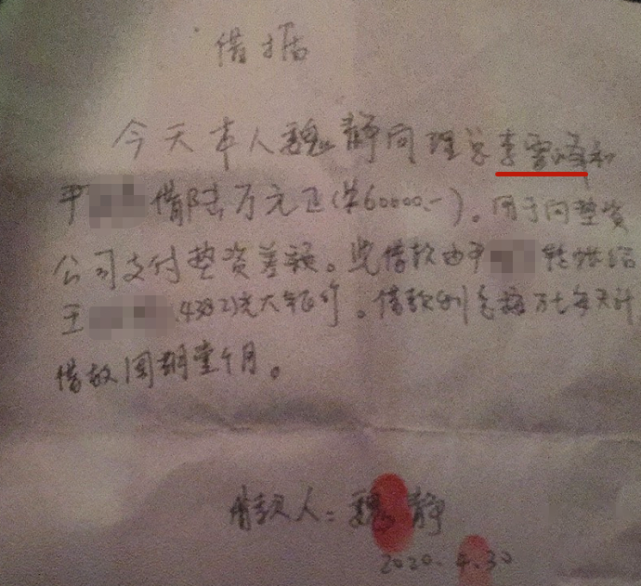 借据
今天本人魏静向理总李雷峰和
尹 借陆万元正(¥60000.-)。用于向垫资
公司支付垫资差额。此借款由尹 转账给
王 (4382)光大银行。借款利息按万七每天计
借款周期壹个月。
借款人:魏静
2020.4.30